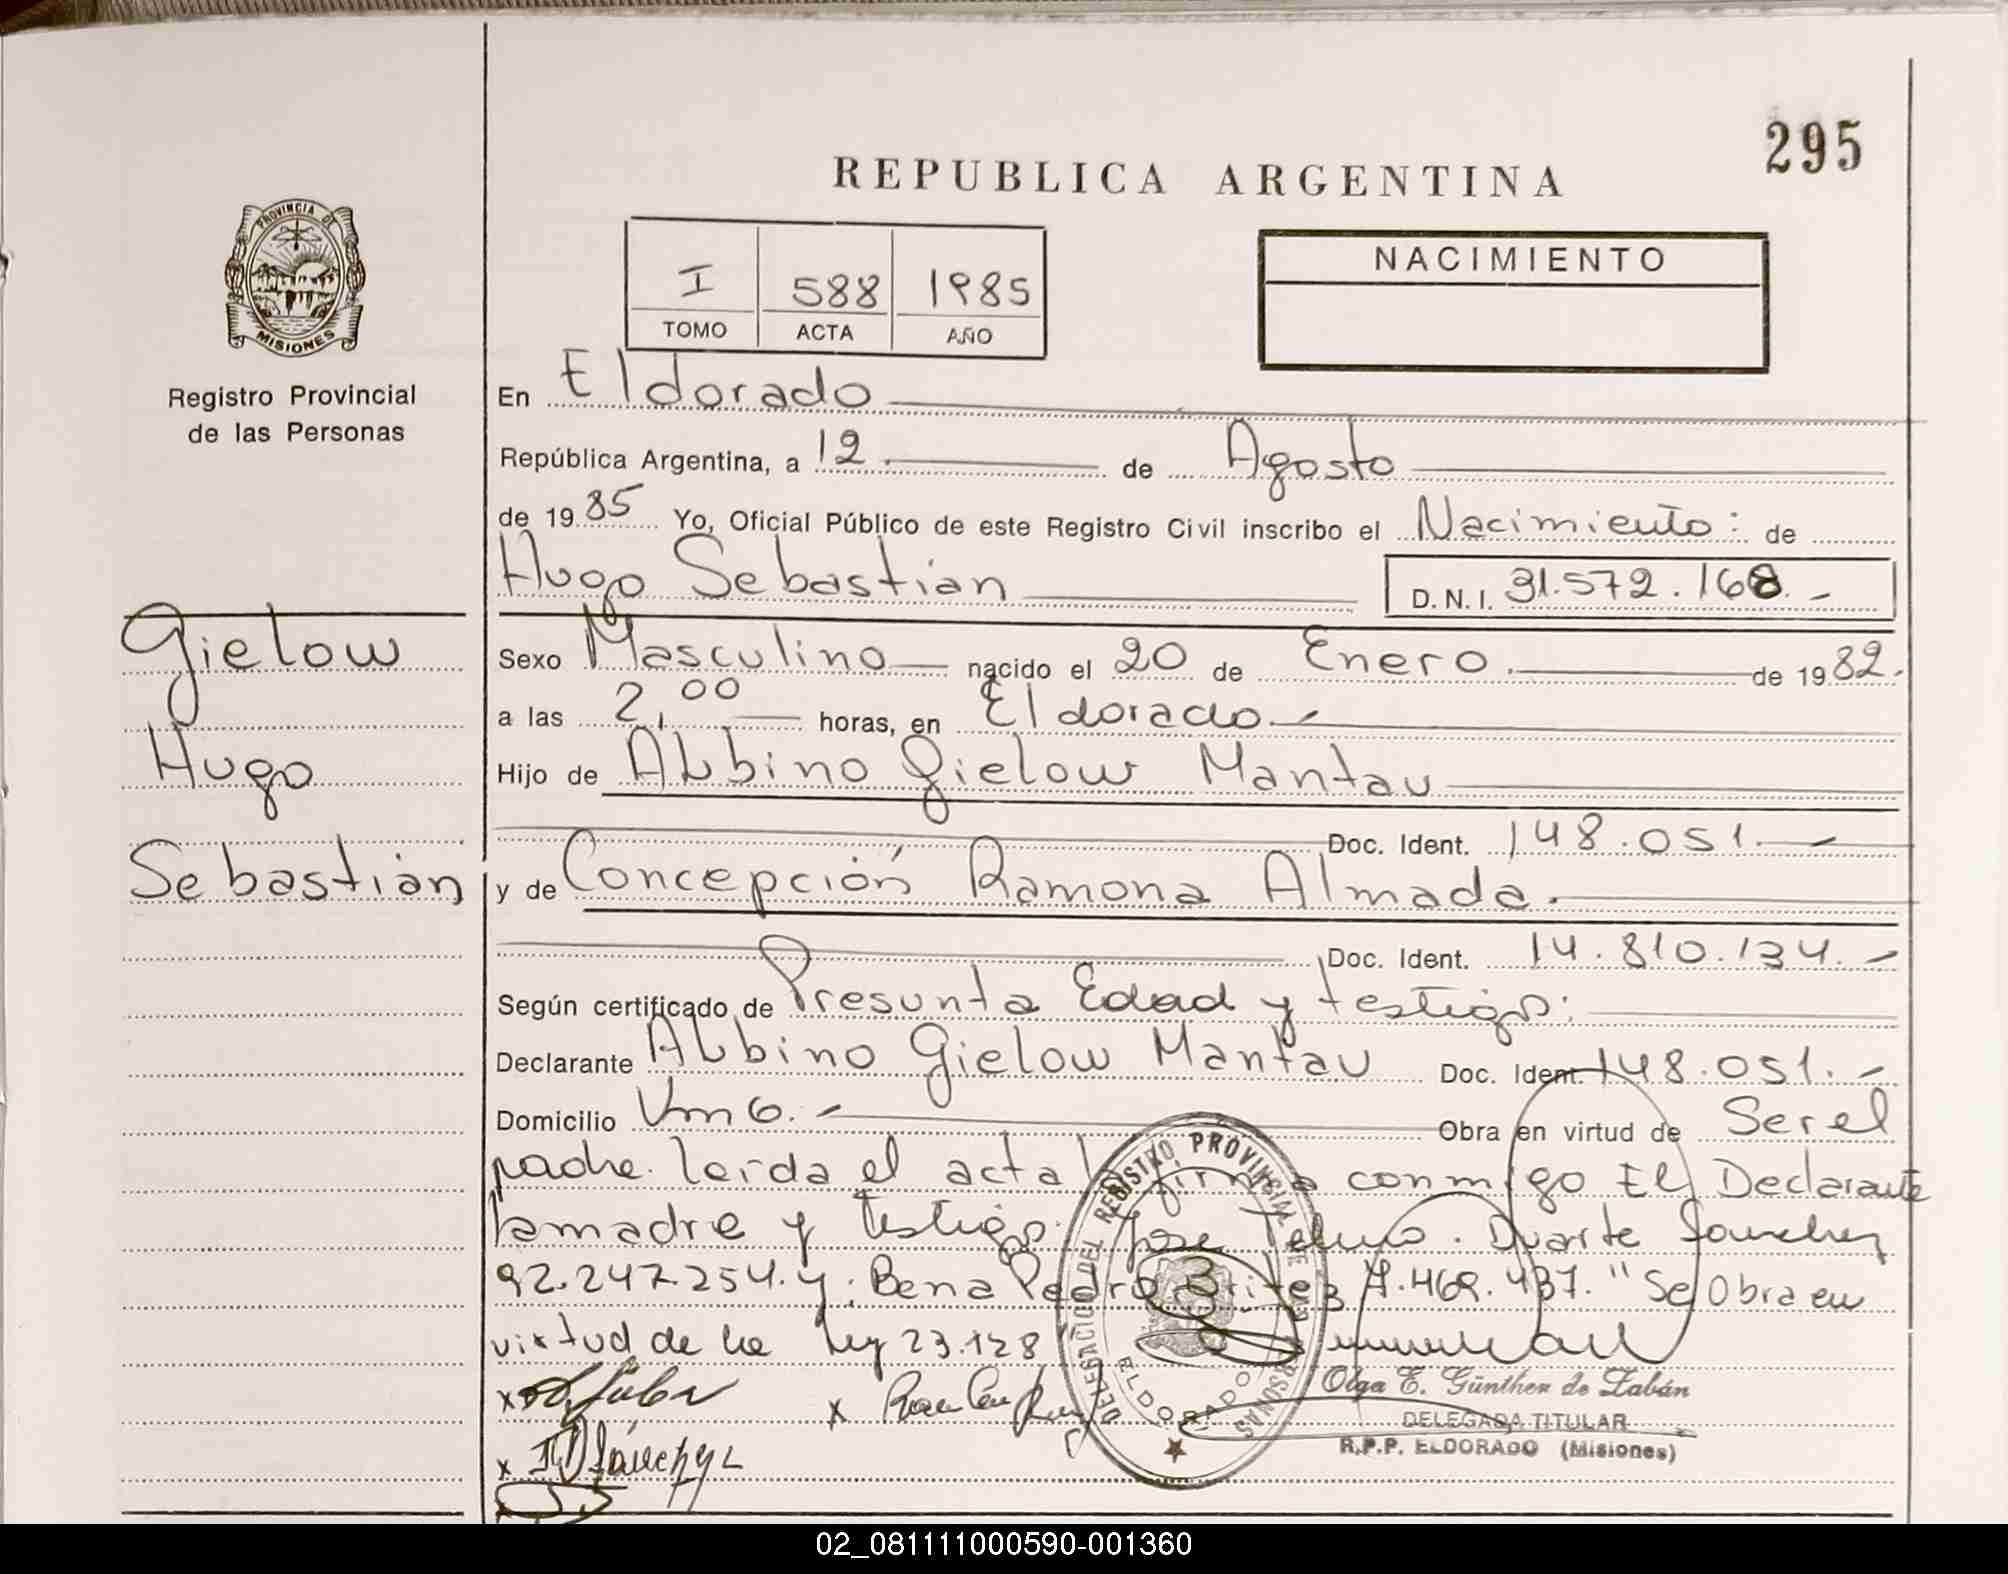 295
REPUBLICA ARGENTINA
PROVINCIA DE
MISIONES
Registro Provincial
de las Personas
I 588 1985
TOMO ACTA AÑO
NACIMIENTO
En Eldorado
República Argentina, a 12 de Agosto
de 1985 Yo, Oficial Público de este Registro Civil inscribo el Nacimiento: de
Hugo Sebastian D.N.I. 31.572.168.-
Gielow
Hugo
Sebastian
Sexo Masculino nacido el 20 de Enero de 1982.
a las 2,00 horas, en Eldorado.-
Hijo de Albino Gielow Mantau
Doc. Ident. 148.051.-
y de Concepción Ramona Almada.
Doc. Ident. 14.810.134.-
Según certificado de Presunta Edad y testigos:
Declarante Albino Gielow Mantau Doc. Ident. 148.051.-
Domicilio Km 6.- Obra en virtud de Ser el
padre. Leida el acta firma conmigo El Declarante
la madre y testigos: Jose Telmo. Duarte Sanchez
92.247.254. y: Bena Pedro Britez 7.469.437. "Se Obra en
virtud de la Ley 23.128
DELEGACION DEL REGISTRO PROVINCIAL DE LAS PERSONAS
ELDORADO
Olga E. Günther de Zabán
DELEGADA TITULAR
R.P.P. ELDORADO (Misiones)
x
x
x
02_081111000590-001360